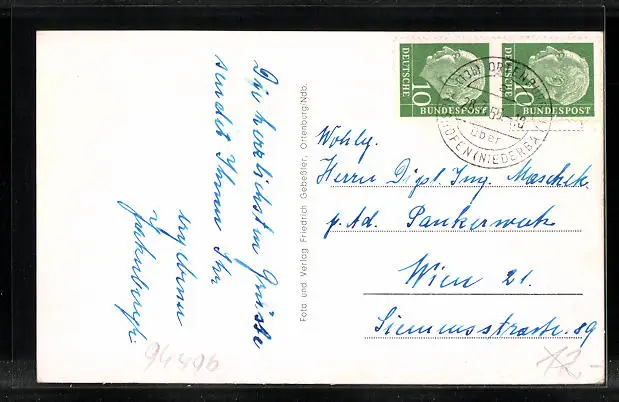 Die herzlichsten Grüsse
sendet Ihnen Ihr
ergebener
Foto und Verlag Friedrich Gebeßler, Ortenburg/Ndb.
DEUTSCHE
10
BUNDESPOST
DEUTSCHE
10
BUNDESPOST
ORTENBURG
über
(NIEDERBAY
Wohlg.
Herrn Dipl. Ing. Maschek
p. Ad. Pankerwerk
Wien 21.
Siemensstrasse 89
94496